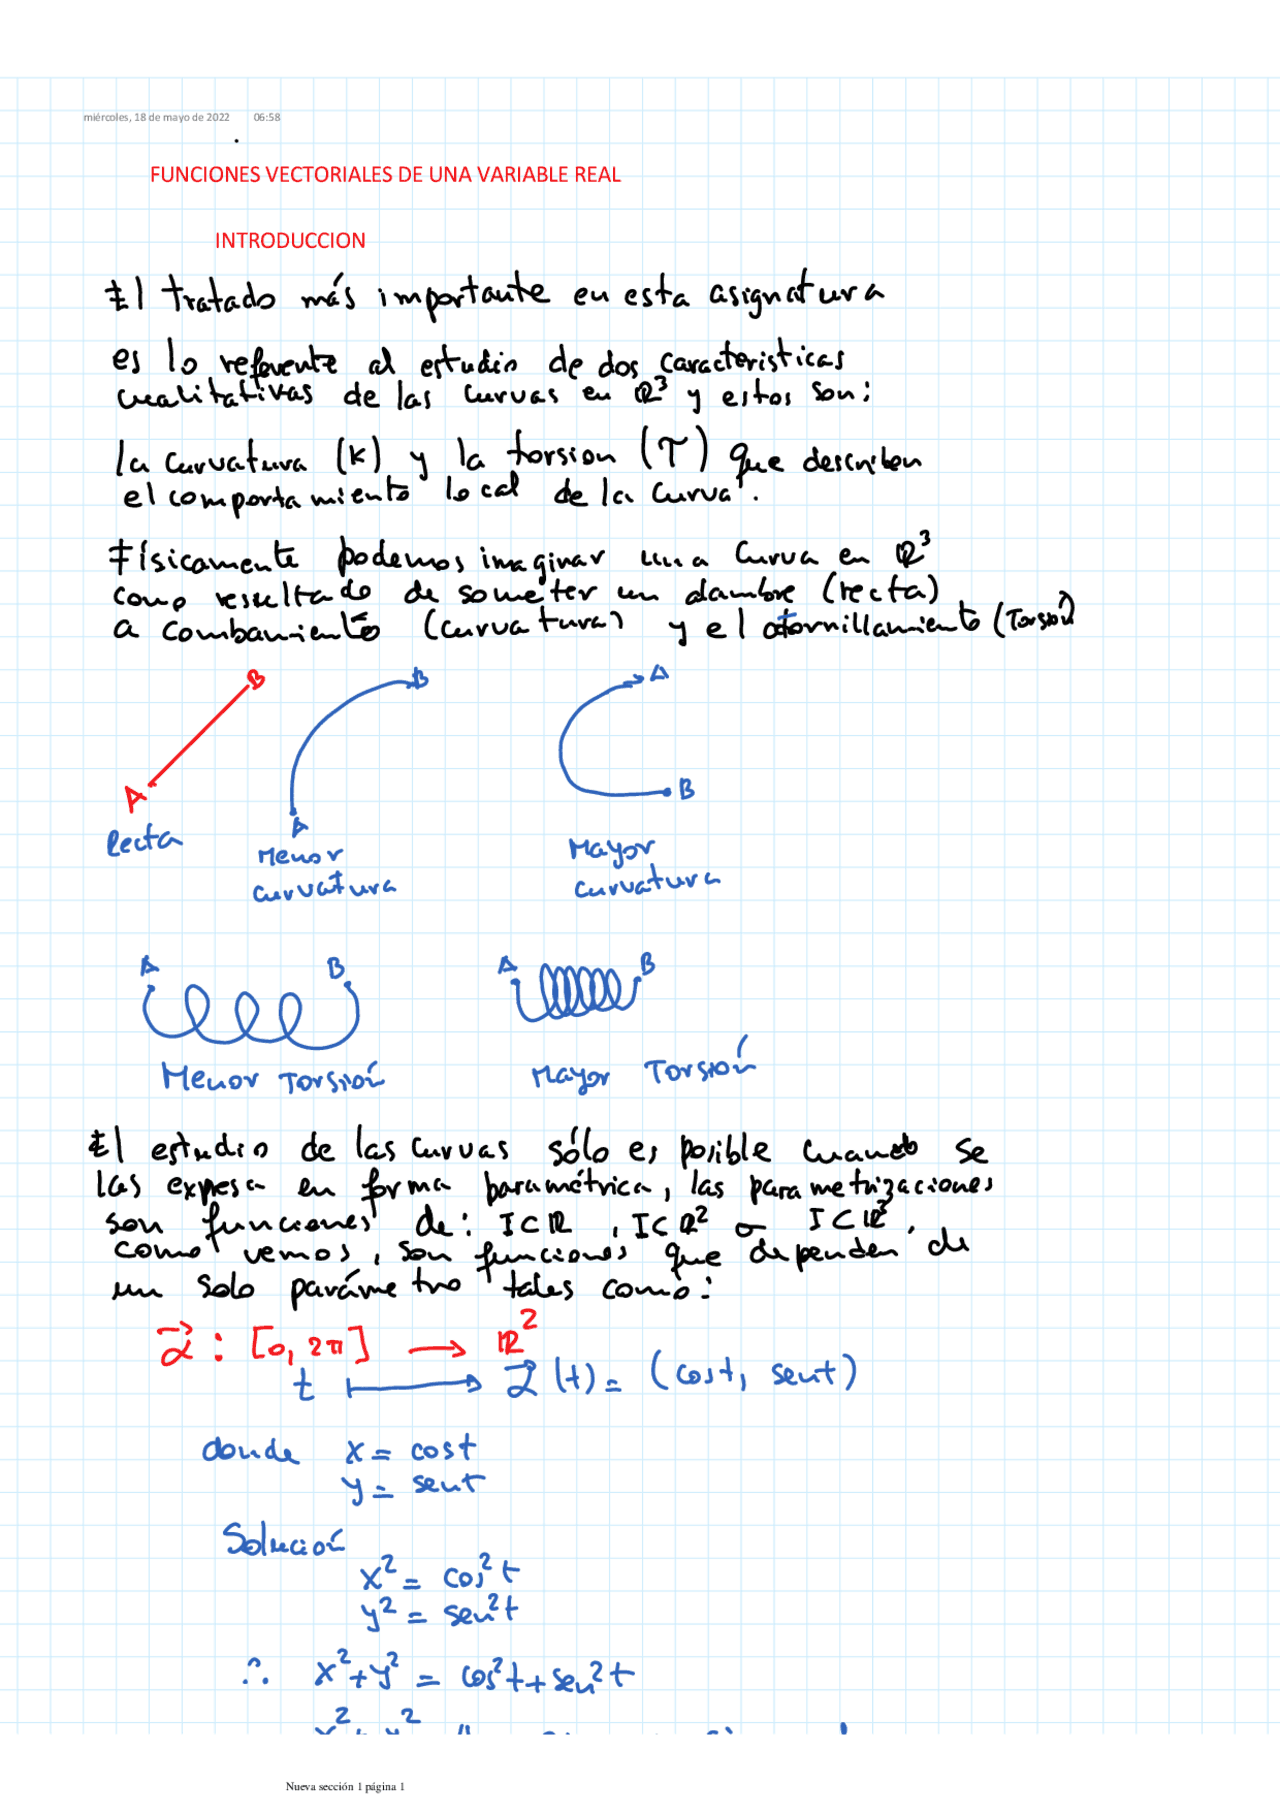 miércoles, 18 de mayo de 2022 06:58
FUNCIONES VECTORIALES DE UNA VARIABLE REAL
INTRODUCCION
El tratado más importante en esta asignatura
es lo referente al estudio de dos caracteristicas
cualitativas de las curvas en ℝ³ y estos son:
la curvatura (K) y la torsion (τ) que describen
el comportamiento local de la curva.
Físicamente podemos imaginar una curva en ℝ³
como resultado de someter un alambre (recta)
a combamiento (curvatura) y el atornillamiento (Torsión)
B
B
A
A
B
A
Recta
Menor
curvatura
Mayor
curvatura
A B
A B
Menor Torsión
Mayor Torsión
El estudio de las curvas sólo es posible cuando se
las expresa en forma paramétrica, las parametrizaciones
son funciones de: I⊂ℝ, I⊂ℝ² o I⊂ℝ³,
como vemos, son funciones que dependen de
un solo parámetro tales como:
α⃗ : [0, 2π] ⟶ ℝ²
t ⟼ α⃗(t) = (cost, sent)
donde x = cost
y = sent
Solución
x² = cos²t
y² = sen²t
∴ x²+y² = cos²t+sen²t
Nueva sección 1 página 1